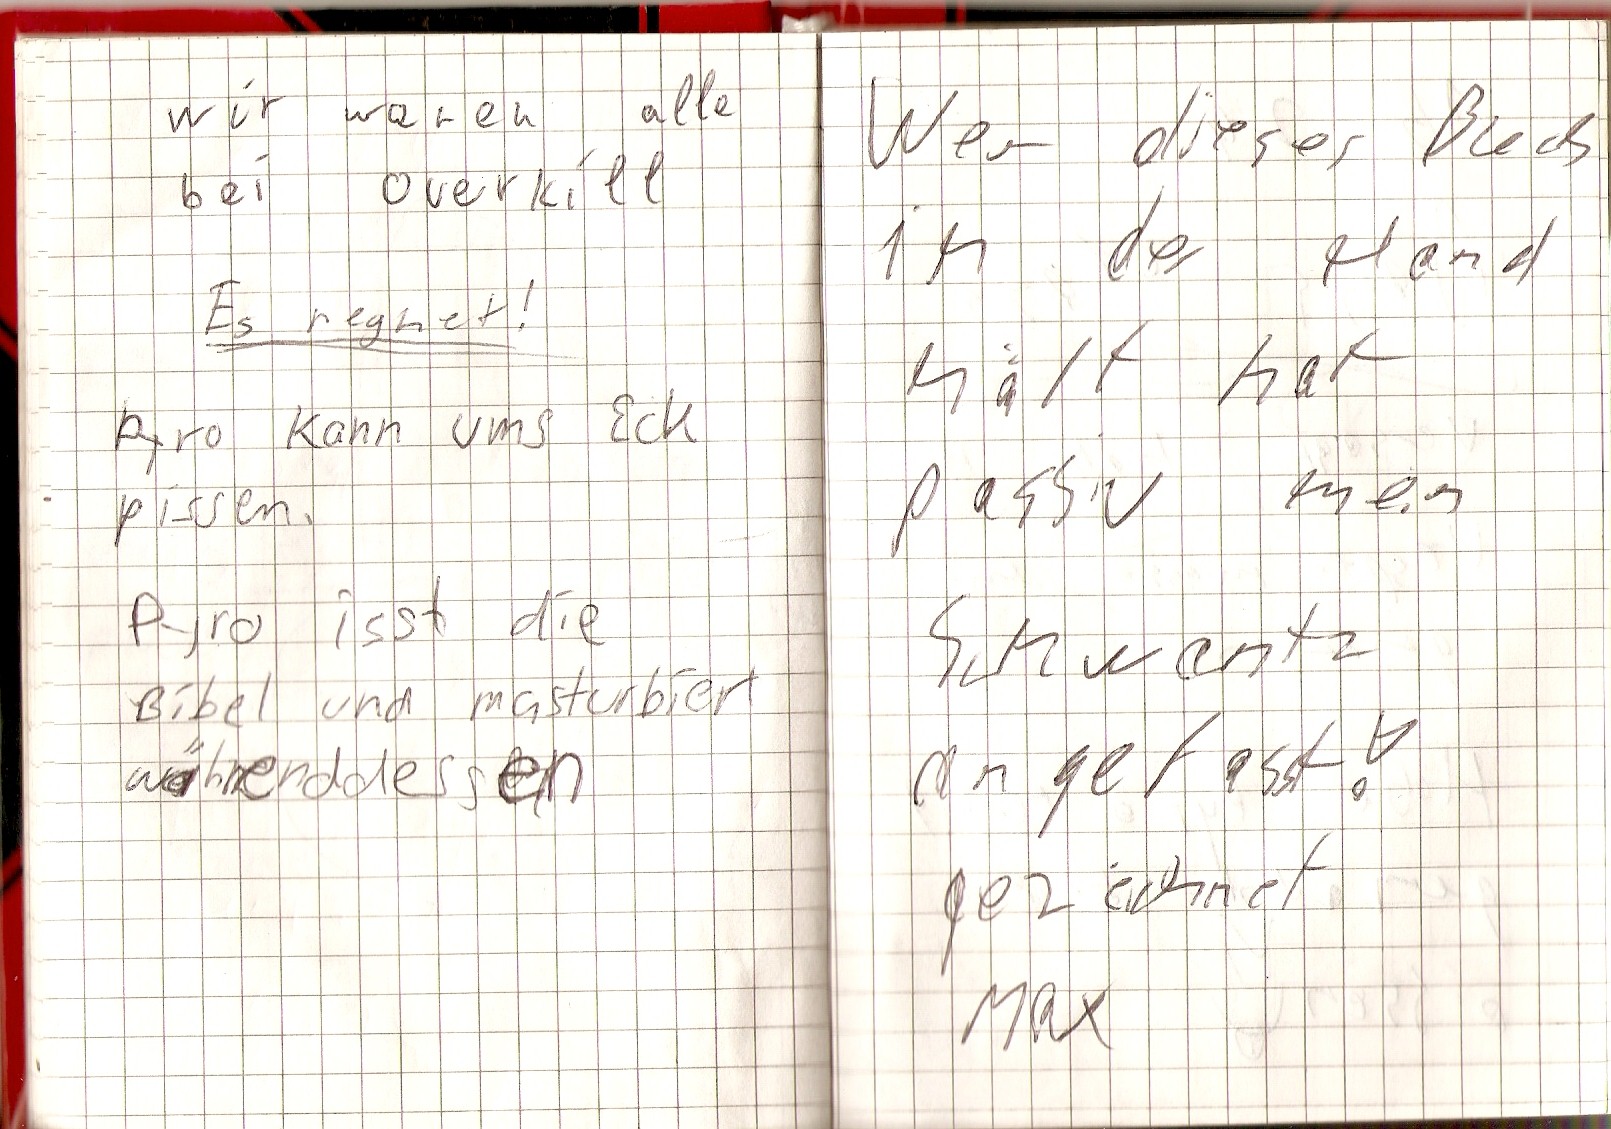 wir waren alle
bei Overkill
Es regnet!
Pyro kann ums Eck
pissen.
Pyro isst die
Bibel und masturbiert
währenddessen
Wer dieses Buch
in der Hand
hält hat
passiv mein
Schwantz
angefasst!
gezeichnet
Max